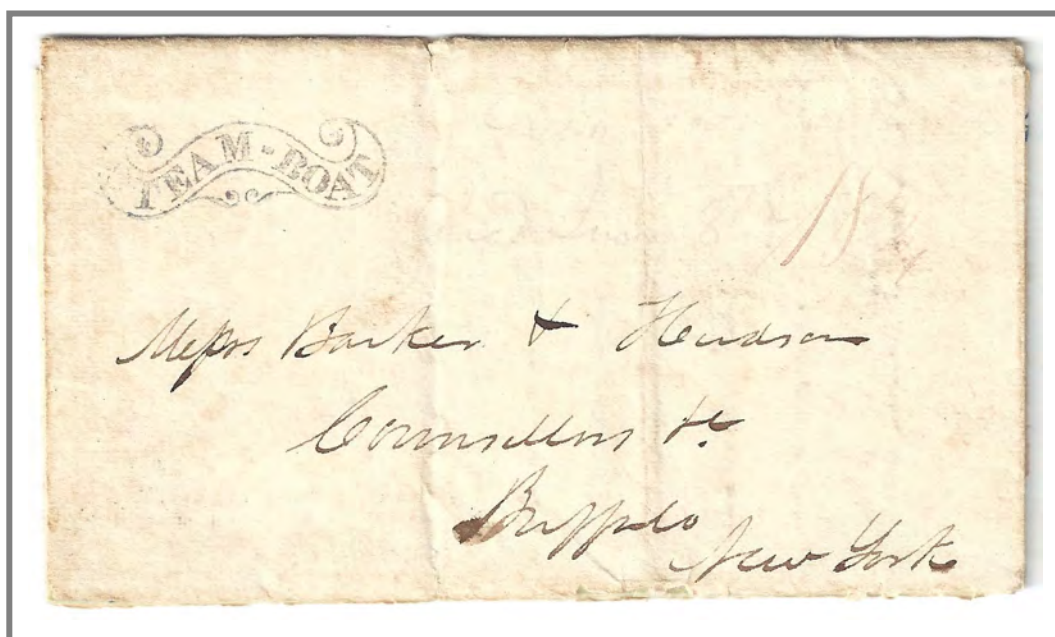 STEAM-BOAT
18
Messrs Barker & Hudson
Counsellors &c
Buffalo
New York